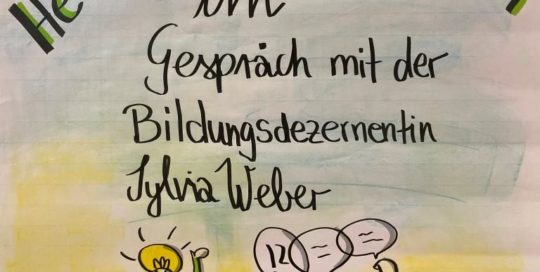 He
im
Gespräch mit der
Bildungsdezernentin
Sylvia Weber